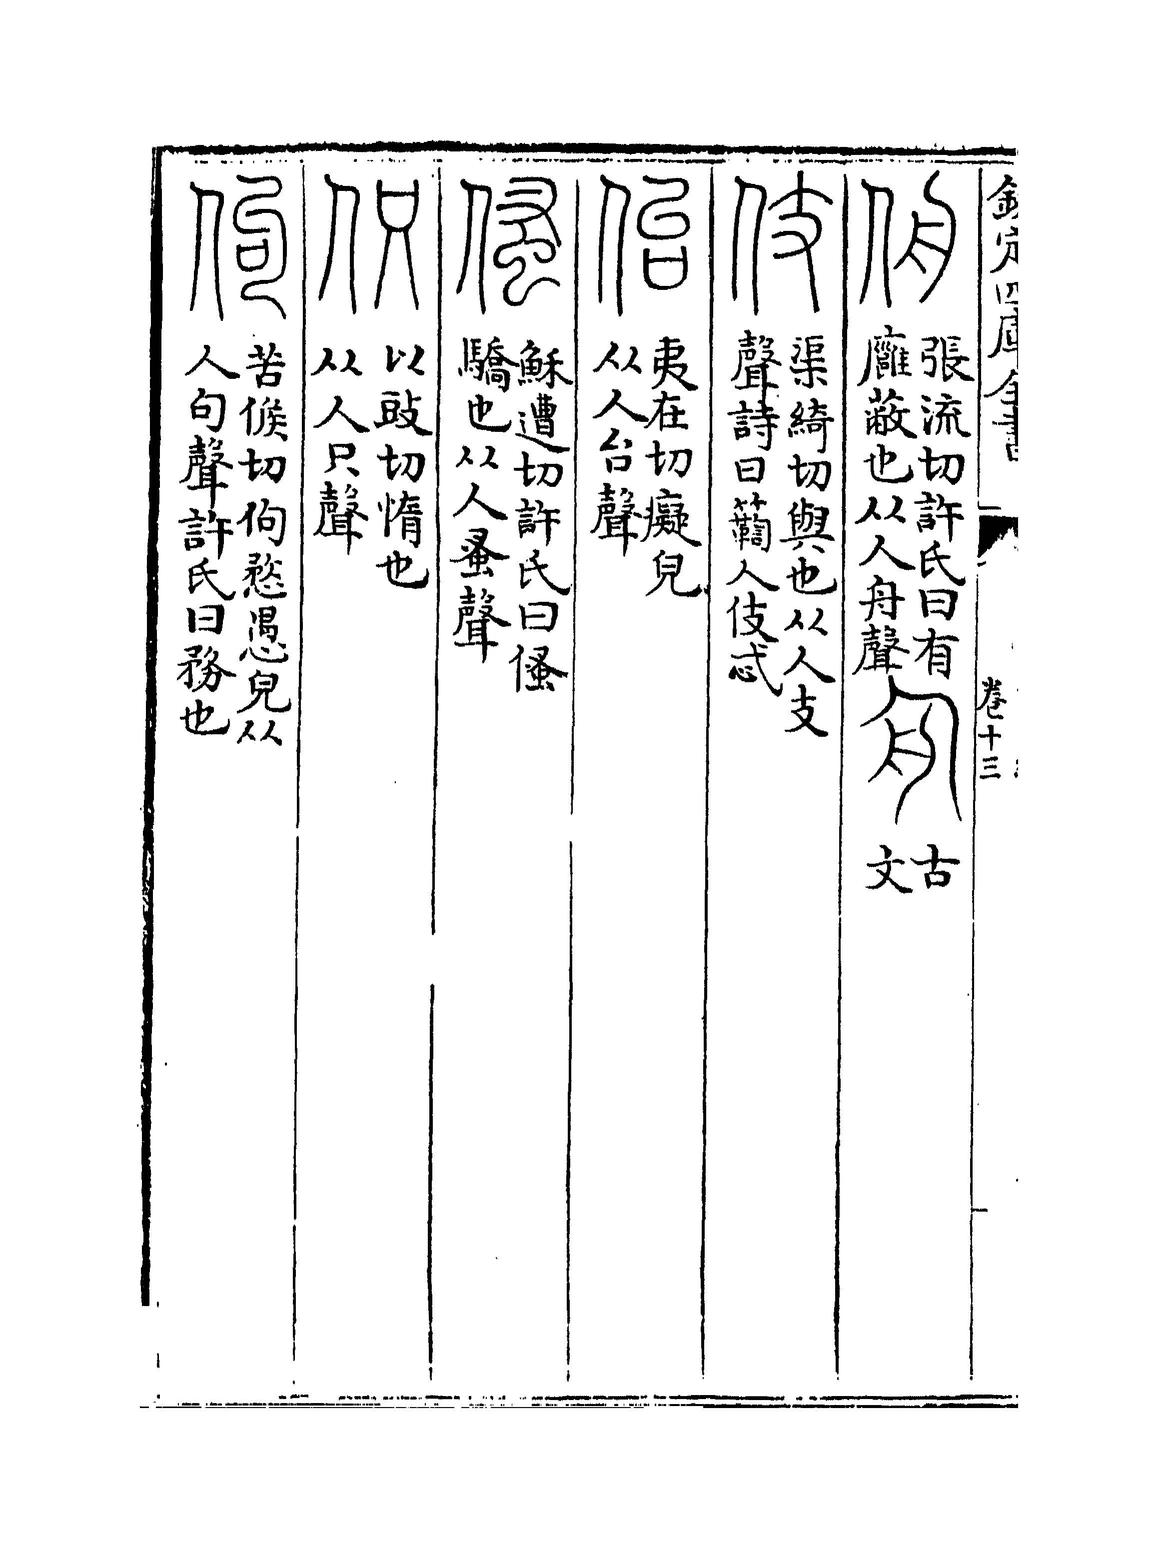 欽定四庫全書
卷十三
侜
張流切許氏曰有
廱蔽也从人舟聲
古
文
伎
渠綺切與也从人支
聲詩曰䉤人伎忒
佁
夷在切癡皃
从人台聲
穌遭切許氏曰
驕也从人蚤聲
伿
以豉切惰也
从人只聲
佝
苦候切佝愗愚皃从
人句聲許氏曰務也